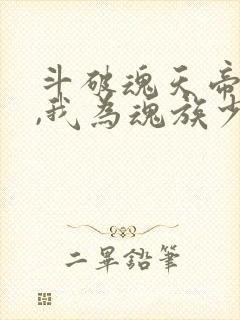 斗破魂天帝
,我為魂族少
二畢鉛筆